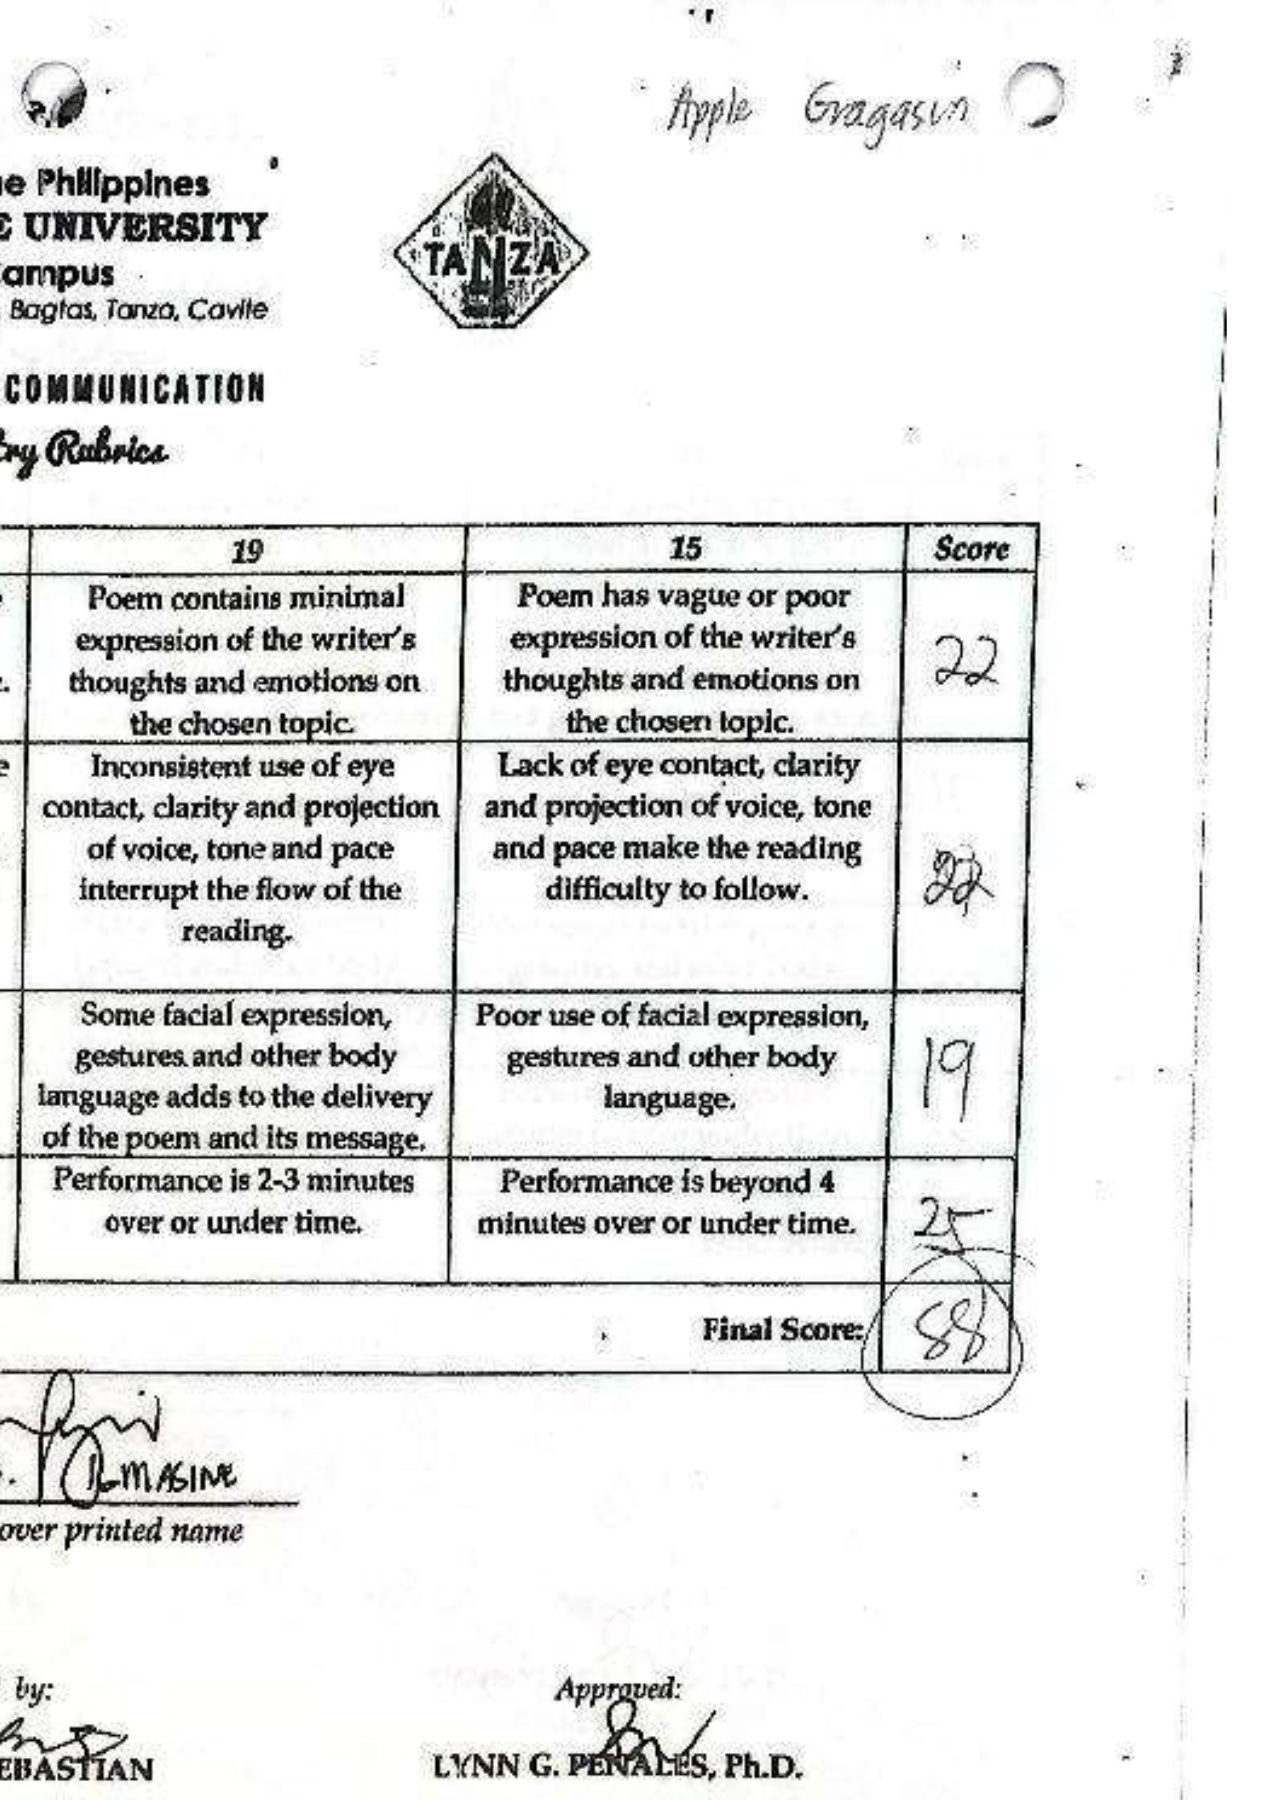 Apple Gragasin
e Philippines
E UNIVERSITY
ampus
Bagtas, Tanza, Cavite
TANZA
COMMUNICATION
ry Rubrics
19 15 Score
Poem contains minimal
expression of the writer's
thoughts and emotions on
the chosen topic.
Poem has vague or poor
expression of the writer's
thoughts and emotions on
the chosen topic.
22
Inconsistent use of eye
contact, clarity and projection
of voice, tone and pace
interrupt the flow of the
reading.
Lack of eye contact, clarity
and projection of voice, tone
and pace make the reading
difficulty to follow.
22
Some facial expression,
gestures and other body
language adds to the delivery
of the poem and its message.
Poor use of facial expression,
gestures and other body
language.
19
Performance is 2-3 minutes
over or under time.
Performance is beyond 4
minutes over or under time.
25
Final Score: 88
over printed name
by:
EBASTIAN
Approved:
LYNN G. PENALES, Ph.D.